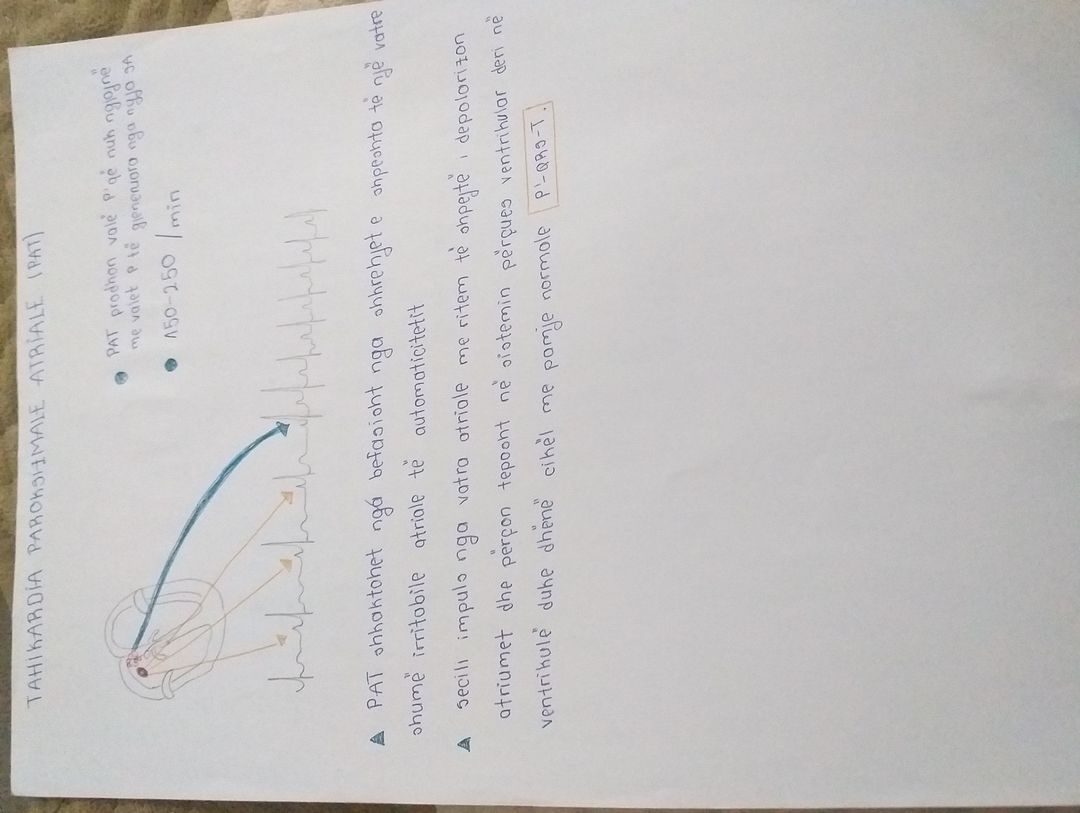 TAHIKARDIA PAROKSIZMALE ATRIALE (PAT)
• PAT prodhon valë P' që nuk ngjajnë
me valët P të gjeneruara nga nyjo SA
• 150-250 /min
▲ PAT shkaktohet nga befasisht nga shkrehjet e shpeshta të një vatre
shumë irritabile atriale të automaticitetit
▲ secili impuls nga vatra atriale me ritëm të shpejtë i depolarizon
atriumet dhe përçon teposht në sistemin përçues ventrikular deri në
ventrikulë duke dhënë cikël me pamje normale P'-QRS-T.